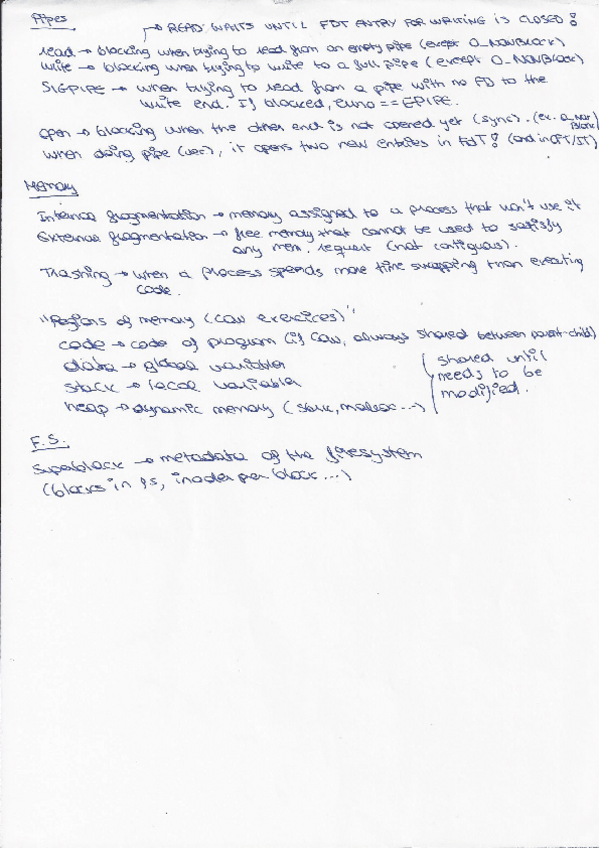 Pipes
→ READ WAITS UNTIL FDT ENTRY FOR WRITING IS CLOSED!
read → blocking when trying to read from an empty pipe (except O_NONBLOCK)
write → blocking when trying to write to a full pipe (except O_NONBLOCK)
SIGPIPE → when trying to read from a pipe with no FD to the
write end. If blocked, errno == EPIPE.
open → blocking when the other end is not opened yet (sync). (ex. O_NON
BLOCK)
when doing pipe (vec), it opens two new entries in FdT! (and in OFT/IT)
Memory
Internal fragmentation → memory assigned to a process that won't use it
External fragmentation → free memory that cannot be used to satisfy
any mem. request (not contiguous).
Trashing → when a process spends more time swapping than executing
code.
"Regions of memory (COW exercices)"
code → code of program (if COW, always shared between parent-child)
data → global variables
stack → local variable
heap → dynamic memory (sbrk, malloc...)
shared until
needs to be
modified.
F.S.
Superblock → metadata of the filesystem
(blocks in FS, inodes per block...)